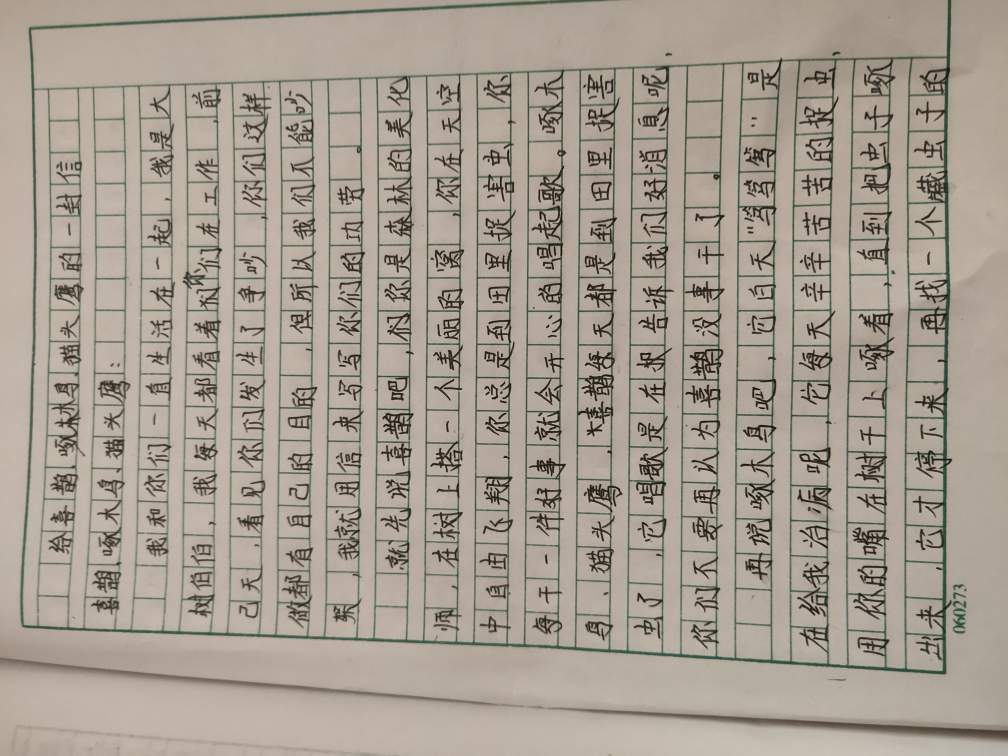 给喜鹊、啄木鸟、猫头鹰的一封信
喜鹊、啄木鸟、猫头鹰:
我和你们一直生活在一起,我是大
树伯伯,我每天都看着你们在工作,前
己天,看见你们发生了争吵,你们这样
做都有自己的目的,但所以我们不能吵
架,我就用信来写写你们的功劳。
就先说喜鹊吧,们你是森林的美化
师,在树上搭一个美丽的窝,你在天空
中自由飞翔,你总是到田里捉害虫,你
每干一件好事就会开心的唱起歌。啄木
鸟、猫头鹰,喜鹊每天都是到田里捉害
虫了,它唱歌是在报告诉我们好消息呢,
你们不要再认为喜鹊没事干了。
再说啄木鸟吧,它白天“笃笃笃…是
在给我治病呢,它每天辛辛苦苦的捉虫,
用你的嘴在树干上啄着,直到把虫子啄
出来,它才停下来,再找一个藏虫子的
060273